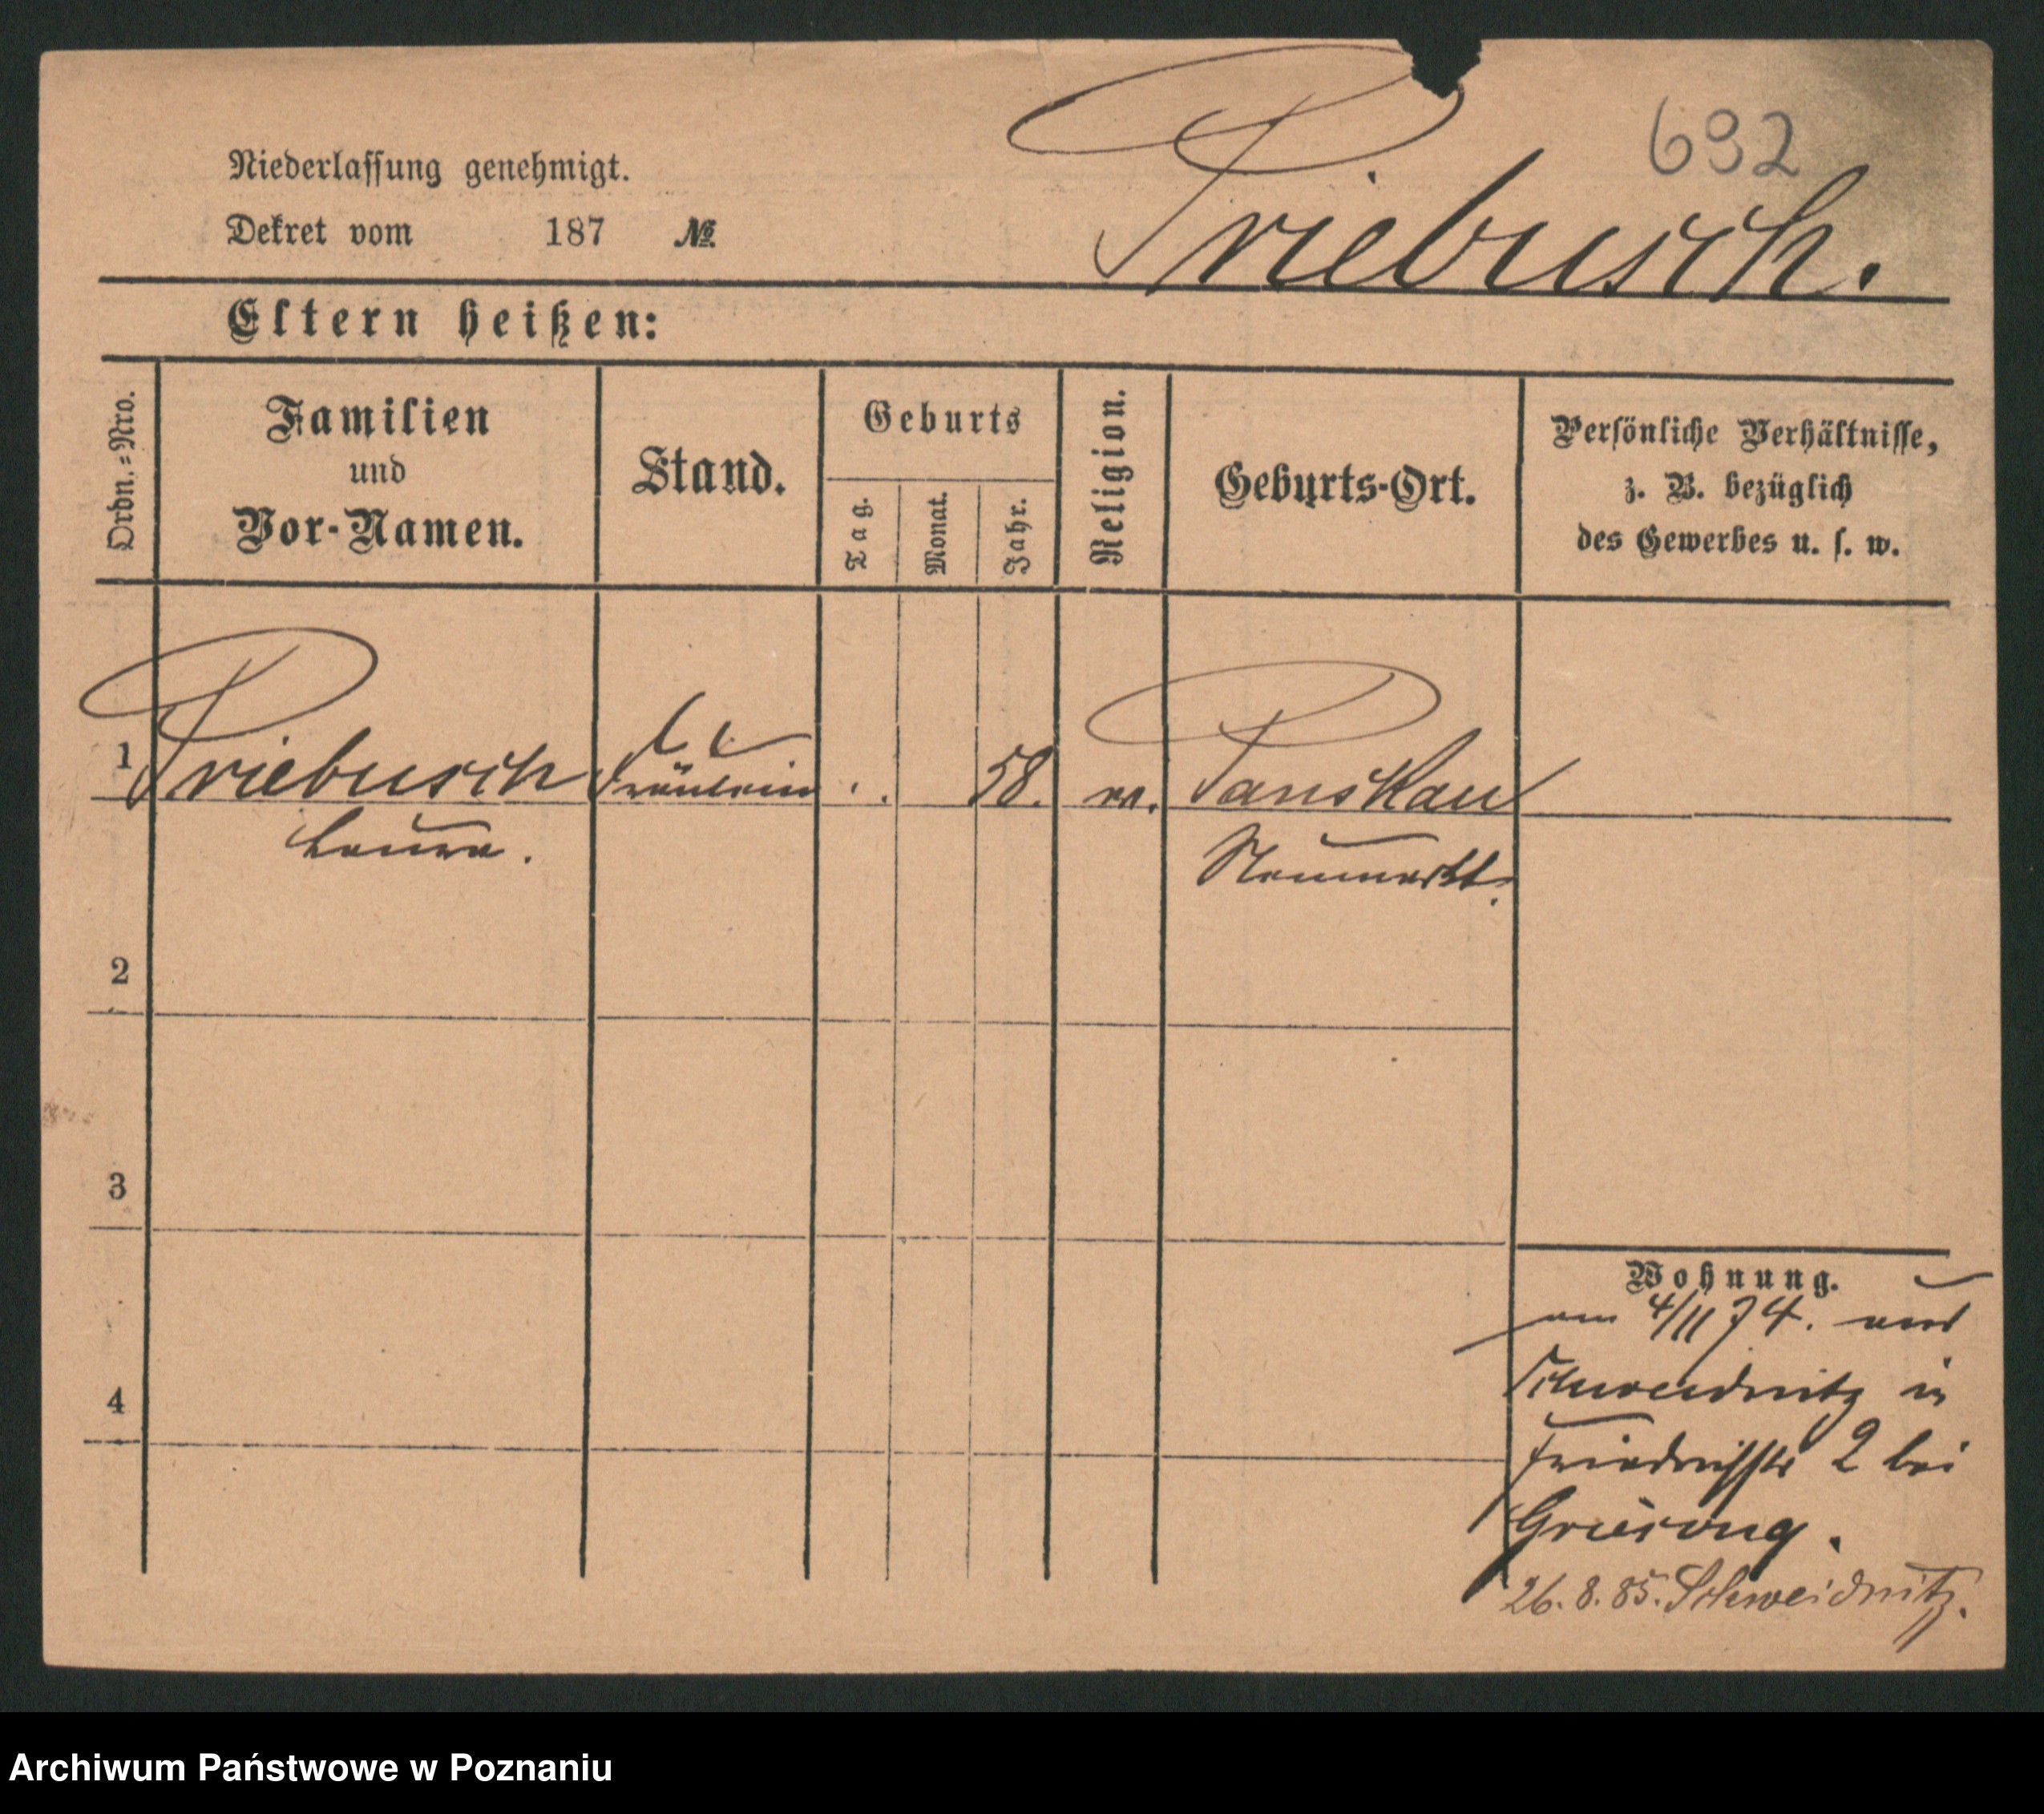 692
Priebusch.
Niederlassung genehmigt.
Dekret vom 187 №
Eltern heißen:
Ordn.=Nro.
Familien
und
Vor-Namen.
Stand.
Geburts
Tag.
Monat.
Jahr.
Religion.
Geburts-Ort.
Persönliche Verhältnisse,
z. B. bezüglich
des Gewerbes u. s. w.
1 Priebusch Fräulein 58. Panskau
Laura.
Neumarkt.
2
3
4
Wohnung.
am 4/11 74. aus
Schweidnitz in
Friedrichstr 2 bei
26. 8. 85. Schweidnitz.
Archiwum Państwowe w Poznaniu